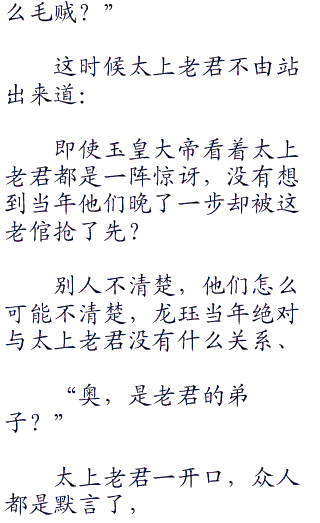 么毛贼？”
这时候太上老君不由站
出来道：
即使玉皇大帝看着太上
老君都是一阵惊讶，没有想
到当年他们晚了一步却被这
老倌抢了先？
别人不清楚，他们怎么
可能不清楚，龙珏当年绝对
与太上老君没有什么关系、
“奥，是老君的弟
子？”
太上老君一开口，众人
都是默言了，